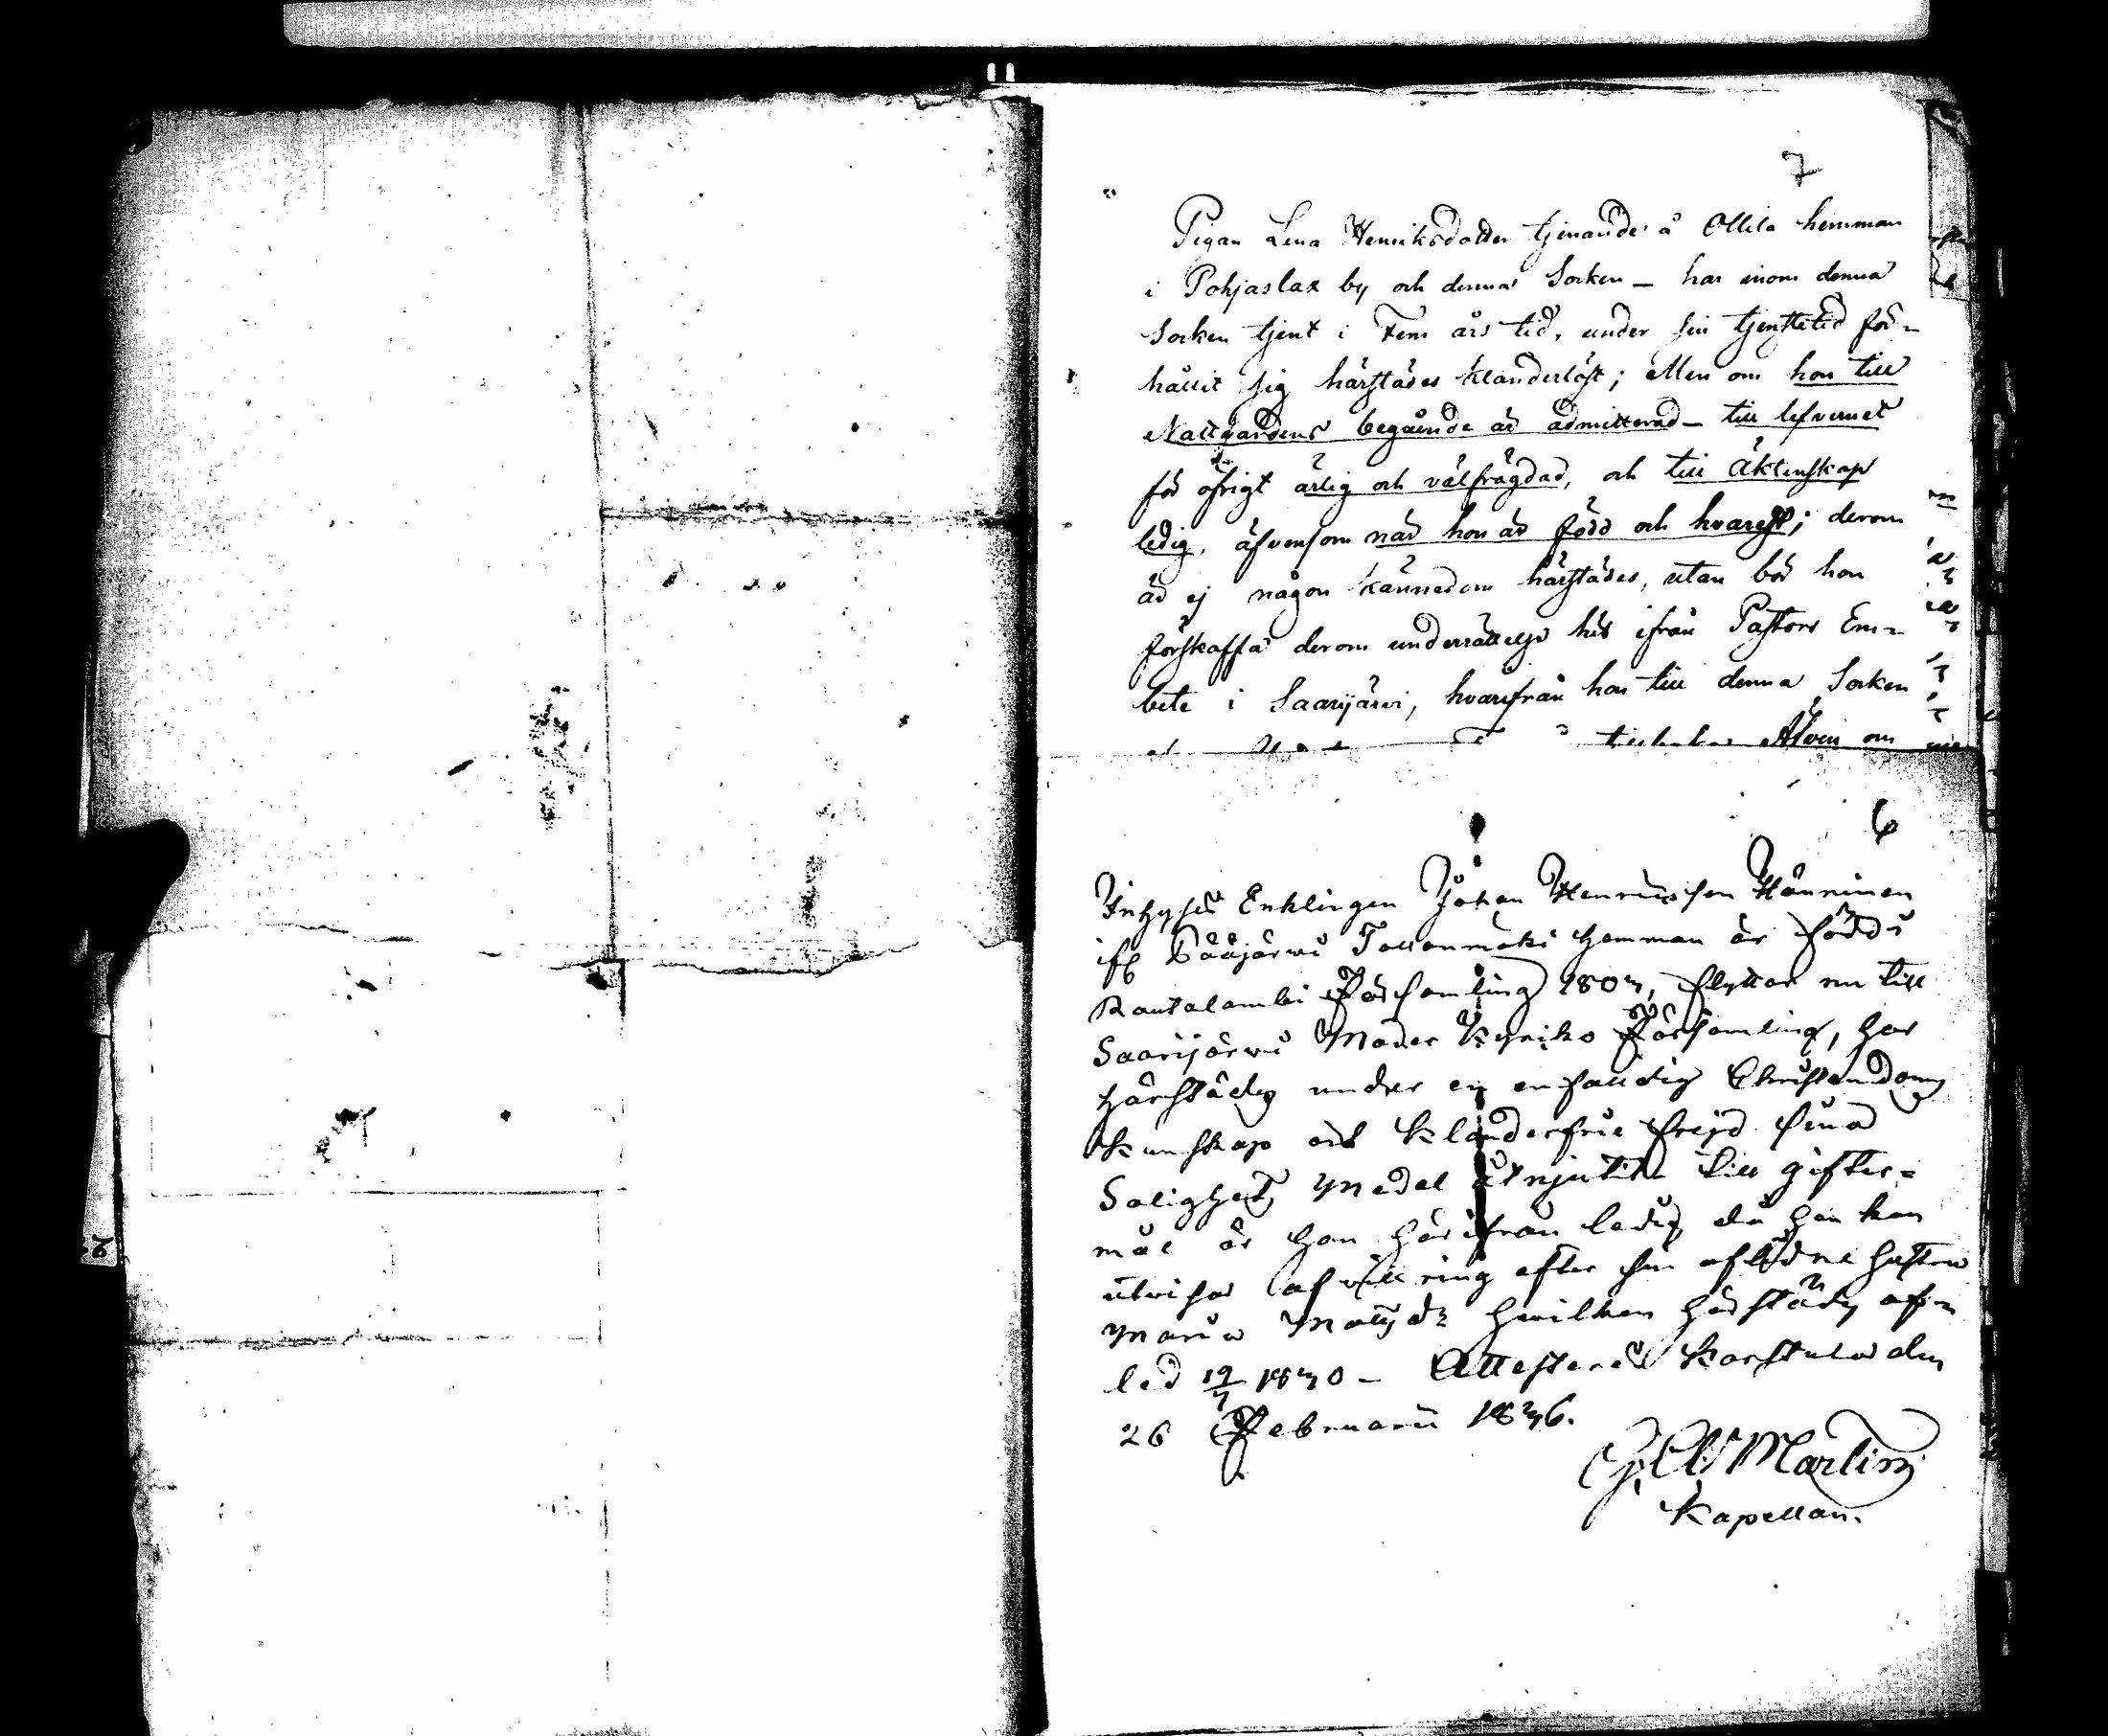 7
Pigan Lena Henriksdotter tjenande å Ollila hemman
i Pohjaslax by och denna Socken — har inom denna
Socken tjent i Fem års tid, under sin tjenstetid för-
hållit sig härstädes klanderlöst; Men om hon till
Nattvardens begående är admitterad — till lefvernet
för öfrigt ärlig och välfrägdad, och till Äktenskap
ledig, äfvensom när hon är född och hvarest; derom
är ej någon kännedom härstädes, utan bör hon
förskaffa derom underrättelse hit ifrån Pastors Em-
bete i Saarijärvi, hvarifrån hon till denna Socken
Äfven om
6
Inhyses Enklingen Johan Henricsson Hänninen
ifr Pääjärwi Tollonmäki hemman är född i
Rautalambi Församling 1807, flyttar nu till
Saarijärwi Moder Kyrko Församling, har
härstädes under en enfaldig Christendoms
kunskap och klanderfrie frejd sina
Salighets medel åtnjutit. Till gifter-
mål är han härifrån ledig, då han kan
utvisa afvittring efter sin aflidne hustru
Maria Matsdr hwilken härstädes af-
led 19/7 1830 — Attesterar Karstula den
26 Februarii 1836.
Martin
Kapellan.
2